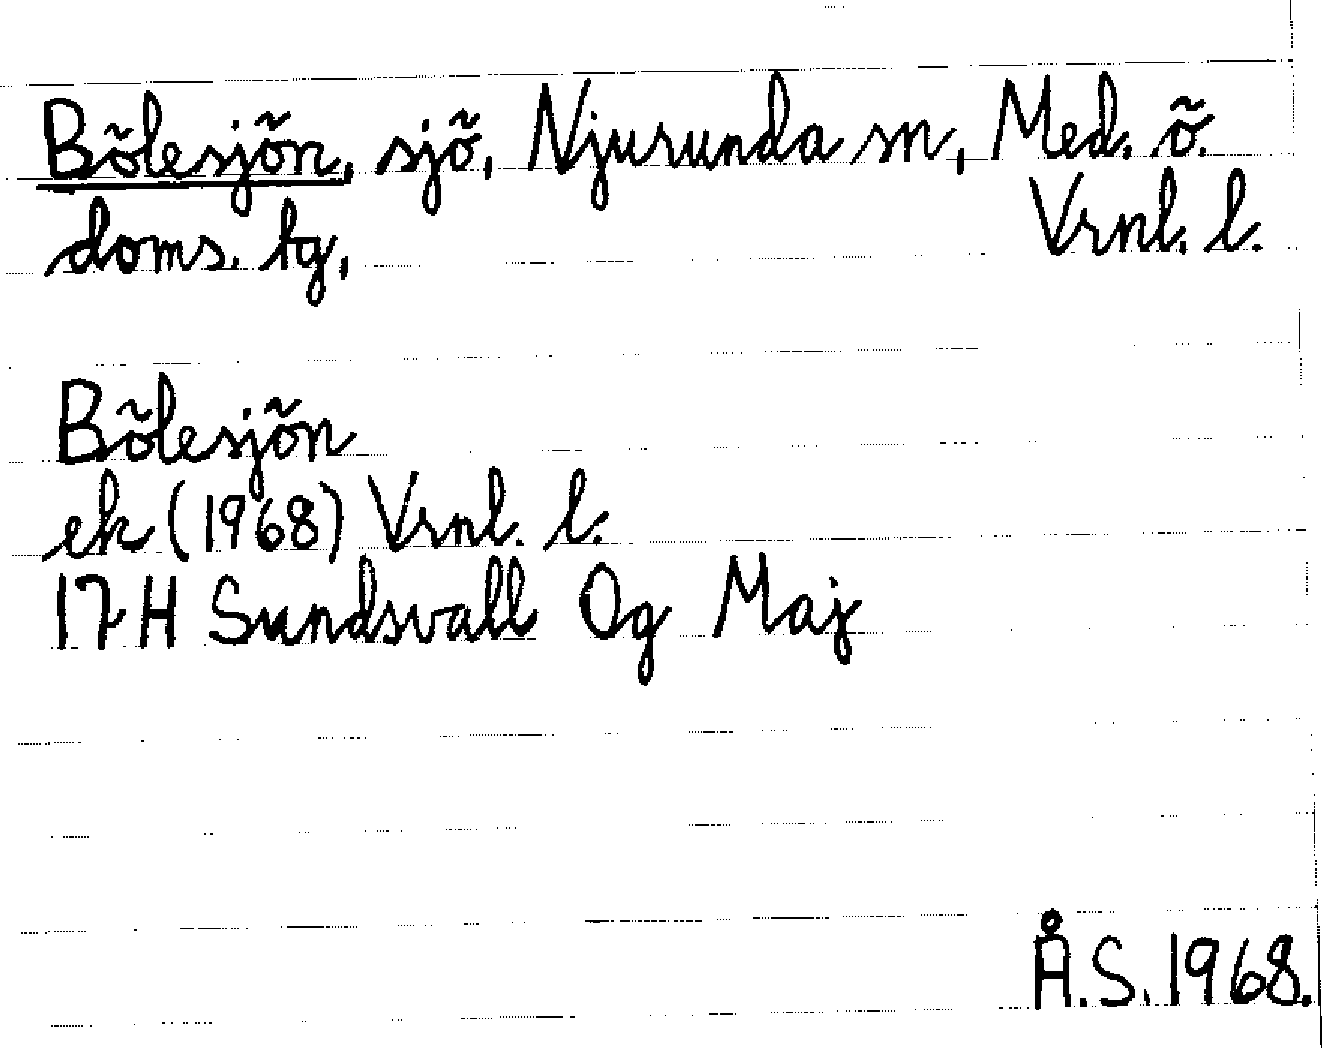 Bölesjön, sjö, Njurunda sn, Med. ö.
doms. hg, Vrnl. l.
Bölesjön
ek (1968) Vrnl. l.
17H Sundsvall Og Maj
Å.S. 1968.